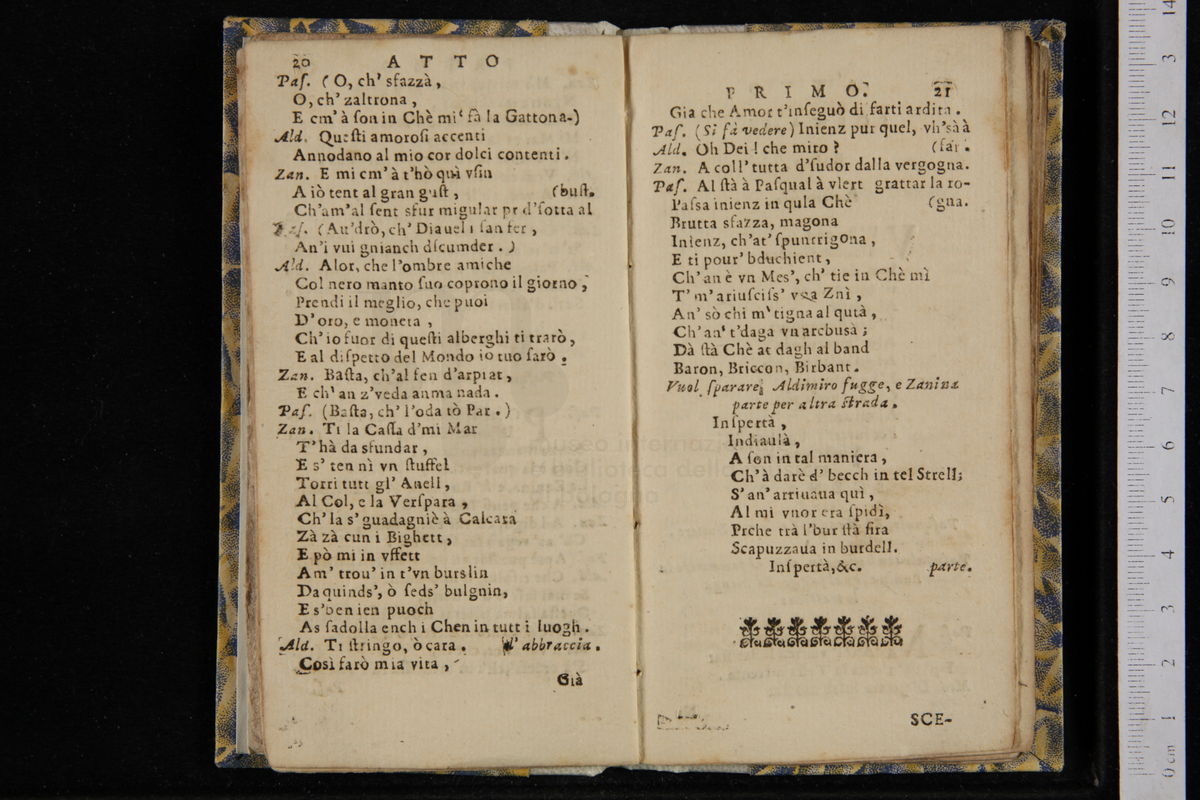 20 ATTO
Pas. (O, ch' sfazzà,
O, ch' zaltrona,
E cm' à son in Chè mi' fà la Gattona.)
Ald. Questi amorosi accenti
Annodano al mio cor dolci contenti.
Zan. E mi cm' à t'hò quì vsin
A iò tent al gran gust, (bust.
Ch'am'al sent sfur migular pr d'sotta al
Pas. (Au'drò, ch' Diauel i san fer,
An'i vui gnianch dscumder.)
Ald. Alor, che l'ombre amiche
Col nero manto suo coprono il giorno,
Prendi il meglio, che puoi
D'oro, e moneta,
Ch' io fuor di questi alberghi ti trarò,
E al dispetto del Mondo io tuo sarò.
Zan. Basta, ch'al sen d'arpiat,
E ch' an z'veda anma nada.
Pas. (Basta, ch' l'oda tò Par.)
Zan. Ti la Cassa d'mi Mar
T'hà da sfundar,
E s' ten nì vn stuffel
Torri tutt gl' Anell,
Al Col, e la Verspara,
Ch' la s' guadagniè à Calcara
Zà zà cun i Bighett,
E pò mi in vffett
Am' trou' in t'vn burslin
Da quinds', ò seds' bulgnin,
E s'ben ien puoch
As sadolla ench i Chen in tutt i luogh.
Ald. Ti stringo, ò cara. l' abbraccia.
Così farò mia vita,
Già
PRIMO. 21
Gia che Amor t'insegnò di farti ardita.
Pas. (Si fà vedere) Inienz pur quel, vh'sà à
Ald. Oh Dei! che miro? (far.
Zan. A coll' tutta d'sudor dalla vergogna.
Pas. Al stà à Pasqual à vlert grattar la ro-
Passa inienz in qula Chè (gna.
Brutta sfazza, magona
Inienz, ch'at' spunrrigona,
E ti pour' bduchient,
Ch' an è vn Mes', ch' tie in Chè mì
T' m' ariuscifs' vsa Znì,
An' sò chi m' tigna al qutà,
Ch' an' t'daga vn arcbusà;
Dà stà Chè at dagh al band
Baron, Briccon, Birbant.
Vuol sparare, Aldimiro fugge, e Zanina
parte per altra strada.
Inspertà,
Indiaulà,
A son in tal maniera,
Ch' à darè d' becch in tel Strell;
S' an' arriuaua quì,
Al mi vnor era spidì,
Prche trà l'bur stà sira
Scapuzzaua in burdell.
Inspertà, &c. parte.
SCE-
museo internazi
biblioteca della
bologna
0 cm 1 2 4 5 6 7 8 9 10 11 12 3 14